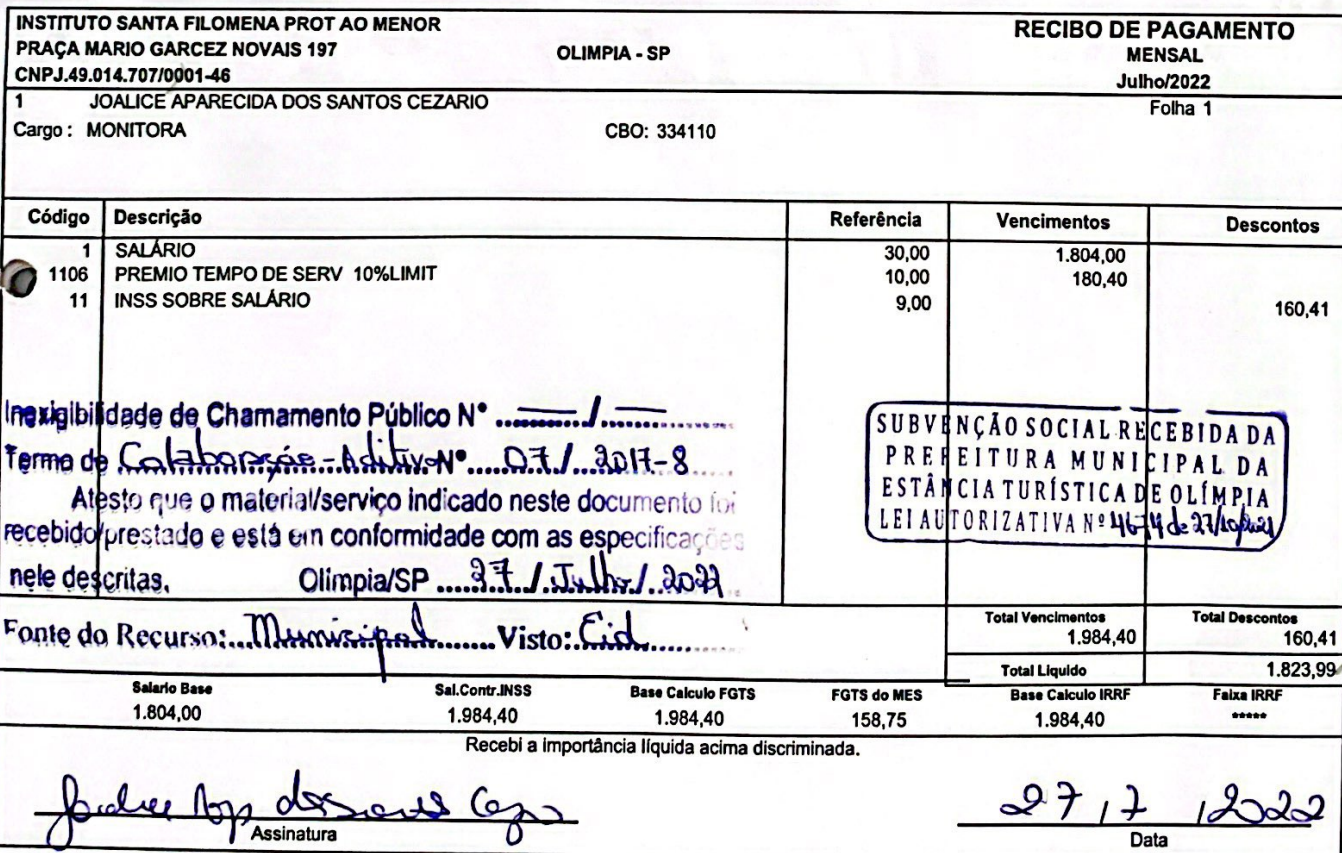 INSTITUTO SANTA FILOMENA PROT AO MENOR
PRAÇA MARIO GARCEZ NOVAIS 197 OLIMPIA - SP
CNPJ.49.014.707/0001-46
RECIBO DE PAGAMENTO
MENSAL
Julho/2022
1 JOALICE APARECIDA DOS SANTOS CEZARIO Folha 1
Cargo : MONITORA CBO: 334110
Código Descrição Referência Vencimentos Descontos
1 SALÁRIO 30,00 1.804,00
1106 PREMIO TEMPO DE SERV 10%LIMIT 10,00 180,40
11 INSS SOBRE SALÁRIO 9,00 160,41
Inexigibilidade de Chamamento Público Nº ........../..........
Termo de Colaboração - Aditivo Nº 07/2017-8
Atesto que o material/serviço indicado neste documento foi
recebido/prestado e está em conformidade com as especificações
nele descritas. Olímpia/SP 27/Julho/2022
SUBVENÇÃO SOCIAL RECEBIDA DA
PREFEITURA MUNICIPAL DA
ESTÂNCIA TURÍSTICA DE OLÍMPIA
LEI AUTORIZATIVA Nº 4674 de 27/10/2021
Fonte do Recurso: Municipal Visto: Cid
Total Vencimentos Total Descontos
1.984,40 160,41
Total Liquido 1.823,99
Salario Base Sal.Contr.INSS Base Calculo FGTS FGTS do MES Base Calculo IRRF Faixa IRRF
1.804,00 1.984,40 1.984,40 158,75 1.984,40 *****
Recebi a importância líquida acima discriminada.
27/7/2022
Assinatura Data